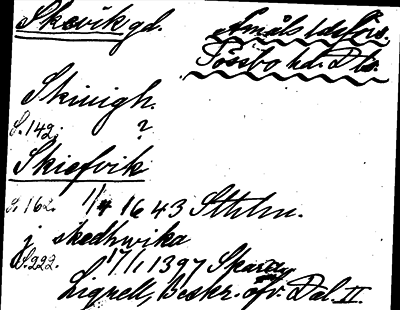 Skevik gd. Åmåls ldsförs.
Tössbo hd. Dls.
Skiuigh.
S. 142. ?
Skiefvik
S. 162. 1/4 1643 Sthlm.
j skedhwika
S. 222. 17/1 1397 Skara
Lignell, Beskr. öfv. Dal. II.